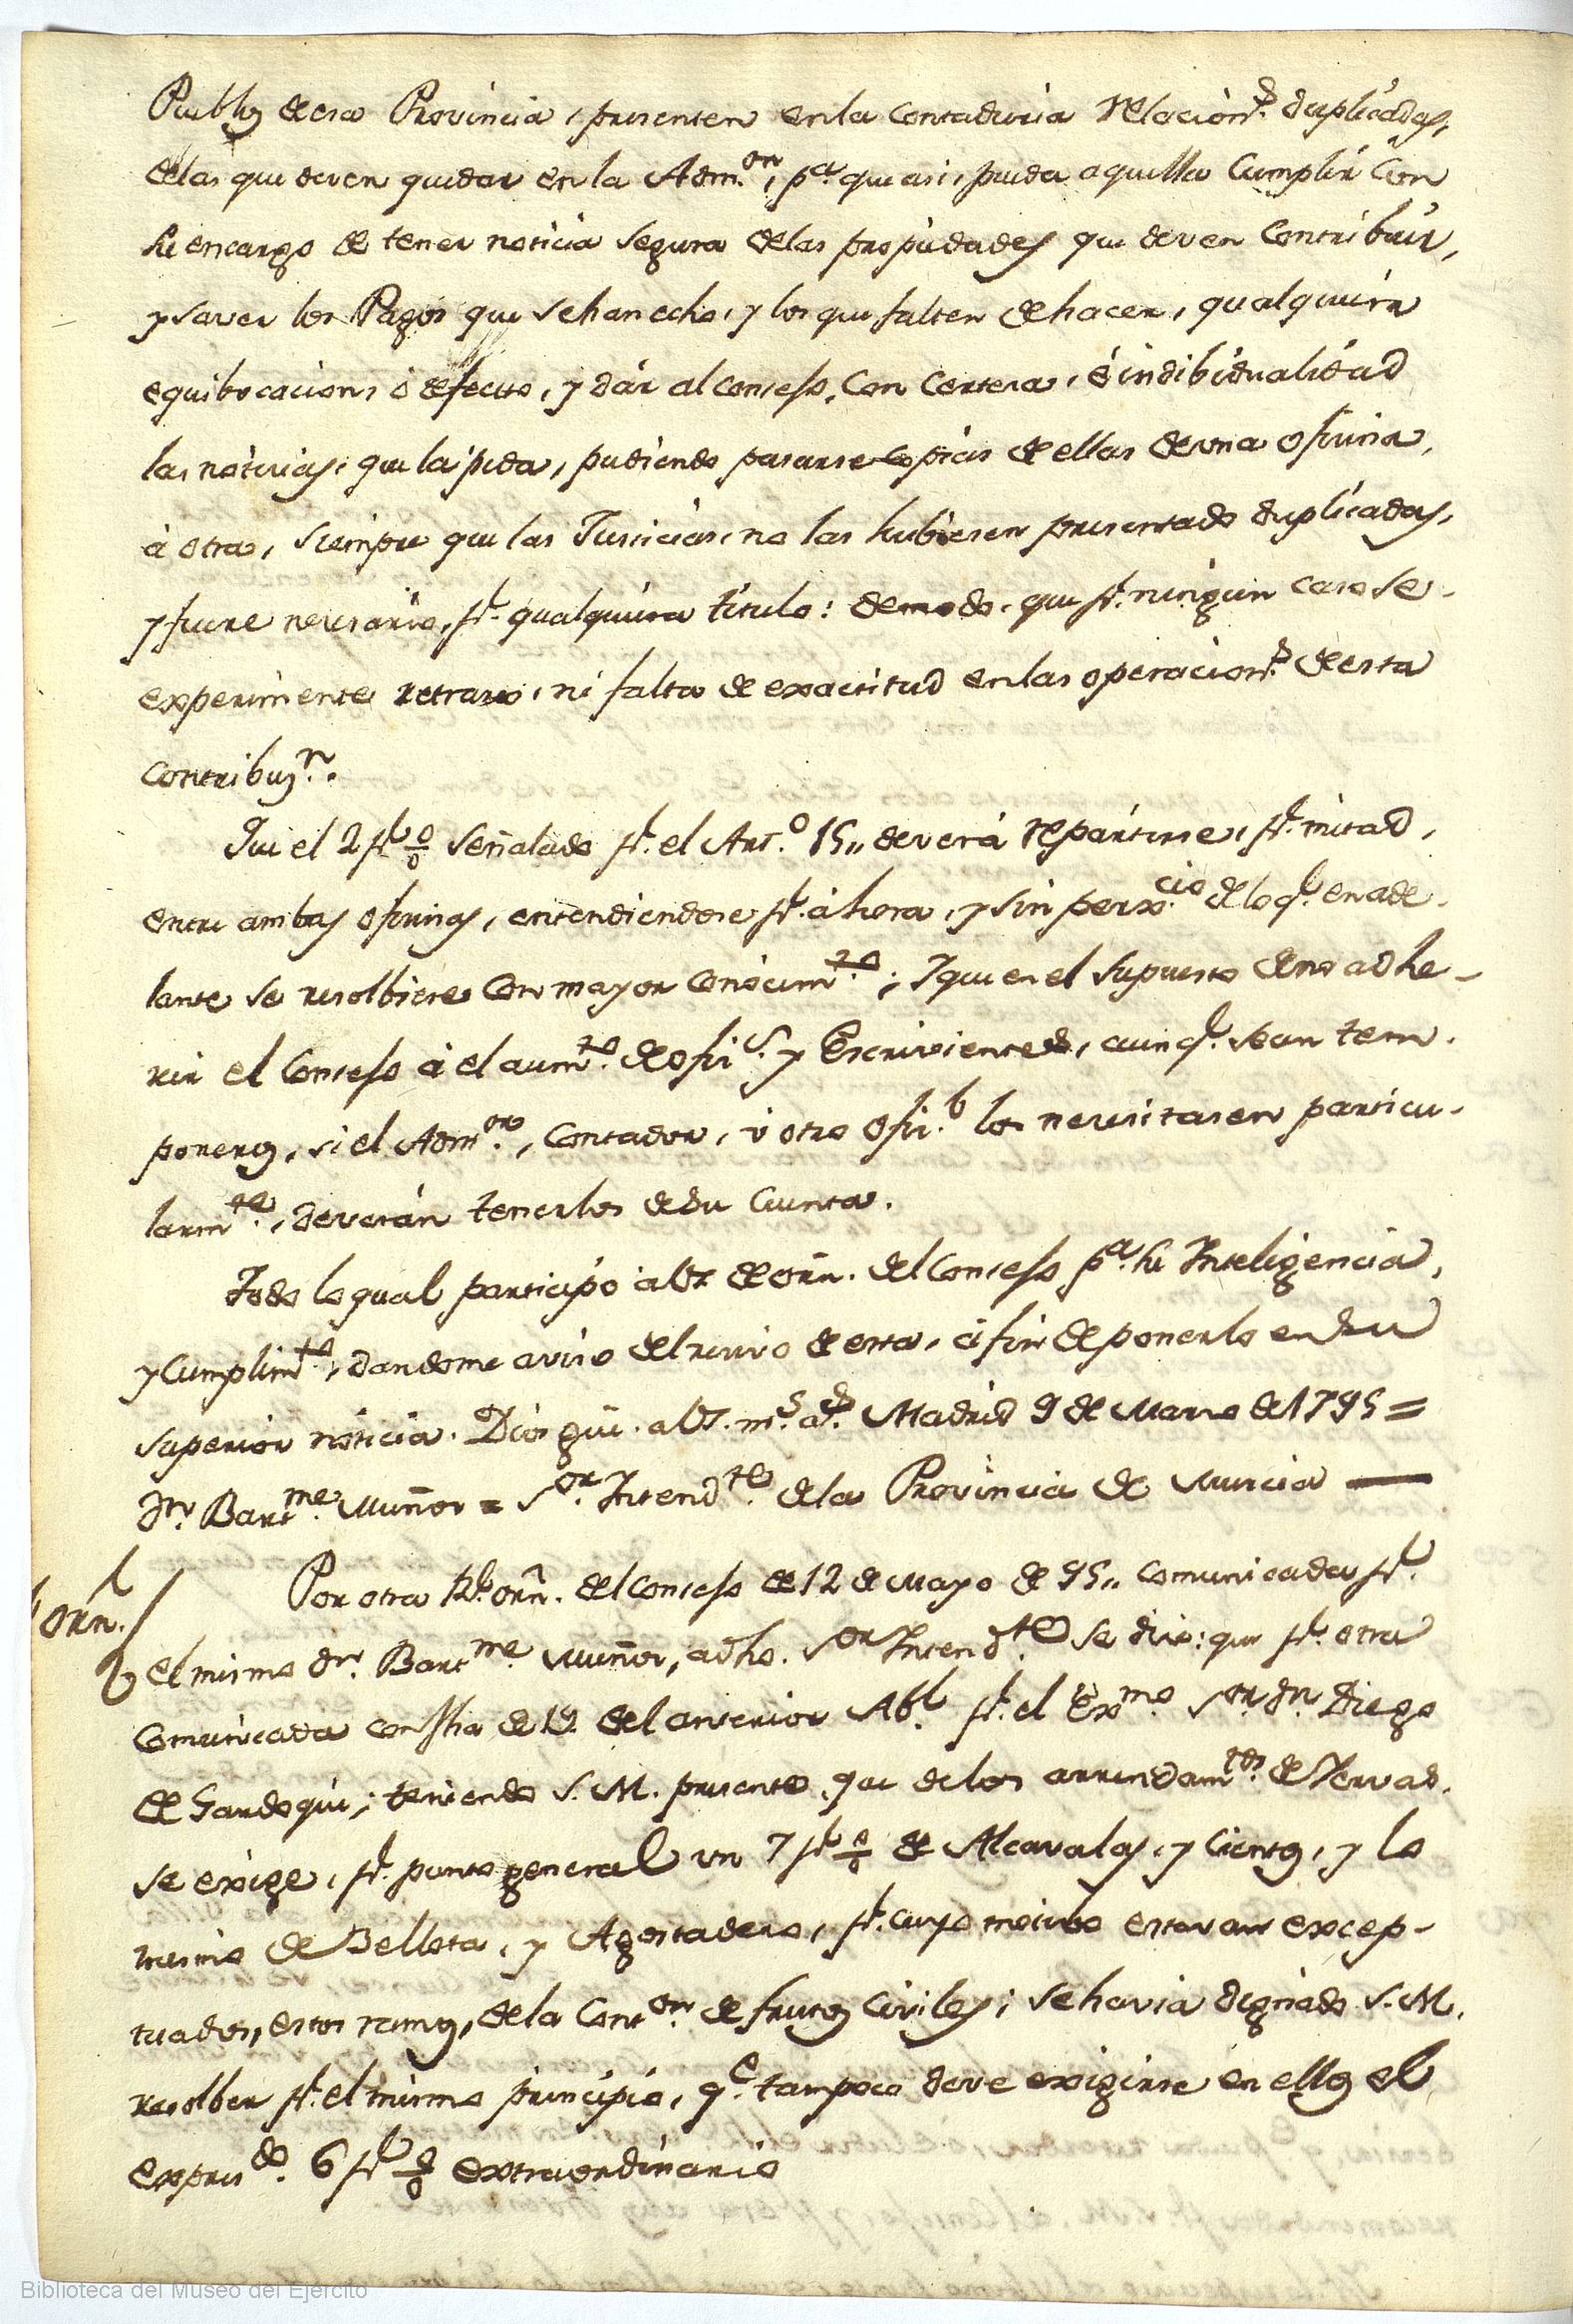 Pueblos de esa Provincia, presenten en la Contaduria relacion.s duplicadas,
de las que deven quedar en la Adm.on, p.a que asi, pueda aquella Cumplir Con
su encargo de tener noticia segura de las propiedades que deven Contribuir,
y saver los Pagos que se han echo, y los que falten de hacer, qualquiera
equibocacion, ó defecto, y dár al Consejo, Con Certeza, é indibidualidad
las noticias, que la pida, pudiendo pasarse copias de ellas de una oficina,
á otra, siempre que las Justicias, no las hubiesen presentado duplicadas,
y fuere necesario, p.r qualquiera titulo: de modo, que p.r ningun caso se
experimente retraso, ni falta de exactitud en las operacion.s de esta
Contribuz.n.
Que el 2 p.r % señalado p.r el Art.o 15,, deverá repartirse, p.r mitad,
entre ambas oficinas, entendiendose p.r áhora, y sin perx.cio de lo q.e en ade-
lante se resolbiere Con mayor Conócim.to; Y que en el supuesto de no adhe-
rir el Consejo á el aum.to de ofi.s y Escrivientes, aunq.e sean tem-
poreros, si el Adm.or, Contador, ú otro ofi.l los necesitasen particu-
larm.te, deverán tenerlos de su Cuenta.
Todo lo qual participo á V.S. de orñ. del Consejo p.a su Inteligencia,
y Cumplim.to, dandome aviso del recivo de esta, á fin de ponerlo en su
superior noticia. Dios güe. a V.S. m.s a.s Madrid 9 de Marzo de 1795 =
Dn. Bart.me Muñoz = S.or Intend.te de la Provincia de Murcia —
Por otra Rl. orñ. del Consejo de 12 de Mayo de 95,, Comunicada p.r
orñ.
el mismo dn. Bart.me Muñoz, a dho. S.or Intend.te se dixo: que p.r otra
Comunicada con fha de 19 del anterior Ab.l p.r el Exmo. S.or dn. Diego
de Gardoqui; teniendo S. M. presente, que de los arrendam.tos de Yervas,
se exige, p.r punto general un 7 p.r % de Alcavalas, y Cientos, y lo
mismo de Bellota, y Agostadero, p.r cuyo motibo estavan excep-
tuados, estos ramos, de la Cont.on de frutos Civiles; se havia dignado S. M.
resolber p.r el mismo principio, q.e tampoco deve exigirse en ellos el
expres.do 6 p.r % extraordinario
Biblioteca del Museo del Ejercito